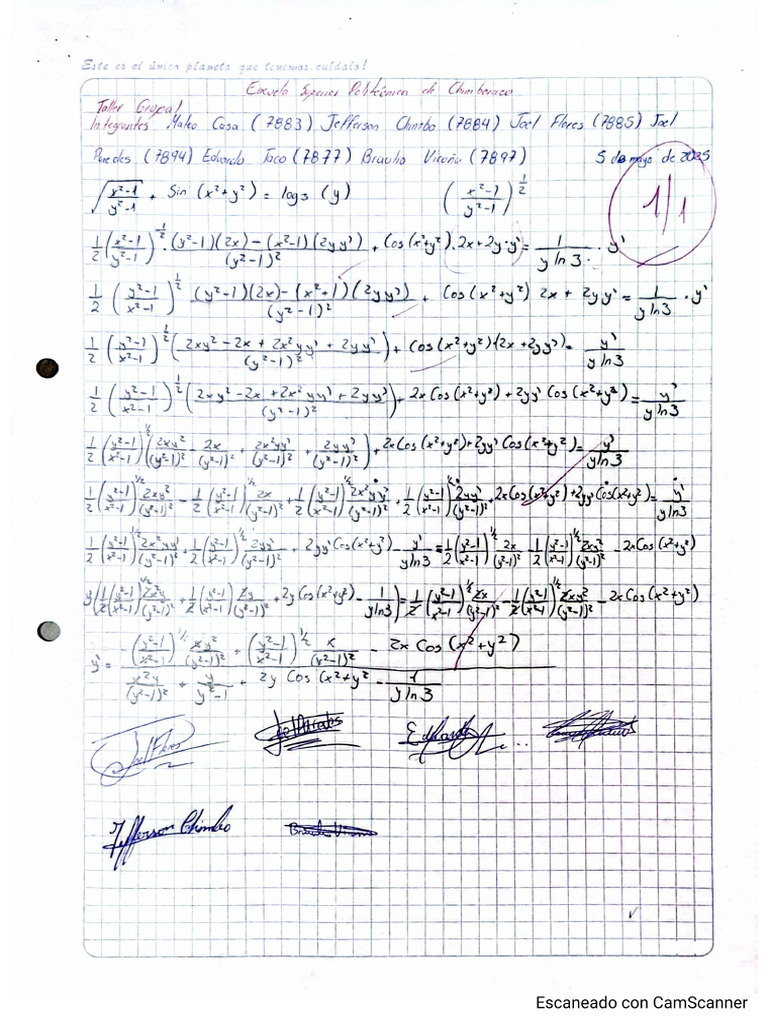 Este es el único planeta que tenemos, cuídalo!
Escuela Superior Politécnica de Chimborazo
Taller Grupal
Integrantes Mateo Casa (7883) Jefferson Chimbo (7884) Joel Flores (7885) Joel
Paredes (7894) Eduardo Taco (7877) Braulio Vicuña (7897) 5 de mayo de 2025
√((x²-1)/(y²-1)) + Sin (x²+y²) = log3 (y) ((x²-1)/(y²-1))^(1/2)
1/1
1/2 ((x²-1)/(y²-1))^(-1/2) · ((y²-1)(2x)-(x²-1)(2yy'))/(y²-1)² + Cos(x²+y²). 2x+2y·y' = 1/(y ln3) · y'
1/2 ((y²-1)/(x²-1))^(1/2) ((y²-1)(2x)-(x²+1)(2yy'))/(y²-1)² + Cos(x²+y²) 2x + 2yy' = 1/(y ln3) · y'
1/2 ((y²-1)/(x²-1))^(1/2) ((2xy²-2x+2x²yy'+2yy')/(y²-1)²) + Cos(x²+y²)·(2x+2yy') = y'/(y ln3)
1/2 ((y²-1)/(x²-1))^(1/2) ((2xy²-2x+2x²yy'+2yy')/(y²-1)²) + 2x Cos(x²+y²) + 2yy' Cos(x²+y²) = y'/(y ln3)
1/2 ((y²-1)/(x²-1))^(1/2) (2xy²/(y²-1)² - 2x/(y²-1)² + 2x²yy'/(y²-1)² + 2yy'/(y²-1)²) + 2x Cos(x²+y²) + 2yy' Cos(x²+y²) = y'/(y ln3)
1/2 ((y²-1)/(x²-1))^(1/2) 2xy²/(y²-1)² - 1/2 ((y²-1)/(x²-1))^(1/2) 2x/(y²-1)² + 1/2 ((y²-1)/(x²-1))^(1/2) 2x²yy'/(y²-1)² + 1/2 ((y²-1)/(x²-1))^(1/2) 2yy'/(y²-1)² + 2x Cos(x²+y²) + 2yy' Cos(x²+y²) = y'/(y ln3)
1/2 ((y²-1)/(x²-1))^(1/2) 2x²yy'/(y²-1)² + 1/2 ((y²-1)/(x²-1))^(1/2) 2yy'/(y²-1)² + 2yy' Cos(x²+y²) - y'/(y ln3) = 1/2 ((y²-1)/(x²-1))^(1/2) 2x/(y²-1)² - 1/2 ((y²-1)/(x²-1))^(1/2) 2xy²/(y²-1)² - 2x Cos(x²+y²)
y'(1/2 ((y²-1)/(x²-1))^(1/2) 2x²y/(y²-1)² + 1/2 ((y²-1)/(x²-1))^(1/2) 2y/(y²-1)² + 2y Cos(x²+y²) - 1/(y ln3)) = 1/2 ((y²-1)/(x²-1))^(1/2) 2x/(y²-1)² - 1/2 ((y²-1)/(x²-1))^(1/2) 2xy²/(y²-1)² - 2x Cos(x²+y²)
y' = (-((y²-1)/(x²-1))^(1/2) xy²/(y²-1)² + ((y²-1)/(x²-1))^(1/2) x/(y²-1)² - 2x Cos (x²+y²)) / (x²y/(y²-1)² + y/(y²-1) + 2y Cos (x²+y² - 1/(y ln3))
Joel Flores
Joel Paredes
Eduardo
Jefferson Chimbo
Escaneado con CamScanner